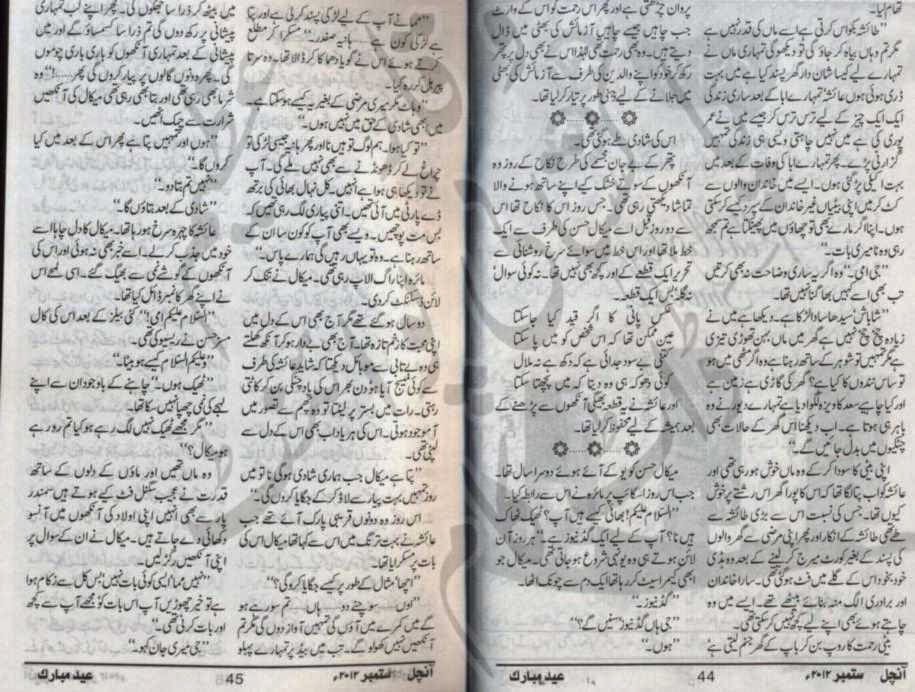 تھام لیا۔
"طائشہ بکواس کرتی ہے اسے ماں کی قدر نہیں ہے
مگر تم وہاں بیاہ کر جاؤ گی تو دیکھو گی تمہاری ماں نے
تمہارے لیے کیسا شان دار گھر پسند کیا ہے میں بہت
ڈری ہوئی ہوں عائشہ تمہارے ابا کے بعد ساری زندگی
ایک ایک چیز کے لیے ترس ترس کر جیسے میں نے عمر
پوری کی ہے میں نہیں چاہتی ویسی ہی زندگی تمہیں
گزارنی پڑے۔ پھر تمہارے ابا کی وفات کے بعد میں
بہت اکیلی پڑ گئی ہوں۔ ایسے میں خاندان والوں سے
کٹ کر میں اپنی بیٹیاں غیر خاندان کے سپرد کیسے کرسکتی
ہوں۔ اپنا اگر مارے بھی تو چھاؤں میں پھینکتا ہے تم سمجھ
رہی ہو نا میری بات۔"
"جی امی۔" وہ اگر یہ ساری وضاحت نہ بھی کرتیں
تب بھی اسے کہیں بھاگنا نہیں تھا۔
"شاباش سیدھا سادا لڑکا ہے۔ دیکھا ہے میں نے
زیادہ چخ چخ نہیں ہے گھر میں ماں بہن تھوڑی تیزی
ہے مگر تمہیں تو شوہر کے ساتھ رہنا ہے وہ اگر مٹھی میں ہو
تو ساس نندوں کا کیا ہے؟ گھر کی گاڑی ہے زمین ہے
اور کیا چاہیے سعد کا ویزہ لگوا دیا ہے تمہارے دیور نے وہ
باہر ہی ہوتا ہے۔ اب دیکھنا اس گھر کے حالات بھی
چٹکیوں میں بدل جائیں گے۔"
اپنی بیٹی کا سودا کر کے وہ ماں خوش ہورہی تھی اور
عائشہ کو اب پتا لگا تھا کہ اس کا پورا گھر اس رشتے پر خوش
کیوں تھا۔ جس کی نسبت اس سے بڑی طائشہ سے
طے تھی طائشہ کے انکار اور پھر اپنی مرضی سے گھر والوں
کی پسند کے بغیر کورٹ میرج کرلینے کے بعد وہ ہڈی
خودبخود اس کے گلے میں فٹ ہوگئی تھی۔ سارا خاندان
اور برادری الگ منہ بنائے بیٹھے تھے۔ ایسے میں وہ
چاہتے ہوئے بھی اپنے لیے کچھ نہیں کرسکتی تھی۔
بیٹی رحمت کا روپ بن کر باپ کے گھر جنم لیتی ہے'
پروان چڑھتی ہے اور پھر اس رحمت کو اس کے وارث
جب چاہیں جیسے چاہیں آزمائش کی بھٹی میں ڈال
دیتے ہیں۔ وہ بھی رحمت تھی لہٰذا اس نے بھی دل پر پتھر
رکھ کر خود کو اپنے والدین کی طرف سے آزمائش کی بھٹی
میں جلانے کے لیے ذہنی طور پر تیار کرلیا تھا۔
اس کی شادی طے ہوگئی تھی۔
پتھر کے بے جان مجسمے کی طرح نکاح کے روز وہ
آنکھوں کے سوتے خشک کیے اپنے ساتھ ہونے والا
تماشا دیکھتی رہی تھی۔ جس روز اس کا نکاح تھا اس
سے دو روز قبل اسے میکال حسن کی طرف سے ایک
خط ملا تھا اور اس خط میں سوائے سرخ روشنائی سے
تحریر ایک قطعے کے اور کچھ بھی نہیں تھا۔ نہ کوئی سوال'
نہ گلہ' بس ایک قطعہ۔
عکس پانی کا اگر قید کیا جاسکتا
عین ممکن تھا کہ اس شخص کو میں پا سکتا
کتنی بے سود جدائی ہے کہ دکھ ہے نہ ملال
کوئی دھوکہ ہی وہ دیتا کہ میں پچھتا سکتا
اور عائشہ نے یہ قطعہ بھیگی آنکھوں سے پڑھنے کے
بعد ہمیشہ کے لیے محفوظ کرلیا تھا۔
میکال حسن کو یو کے آئے ہوئے دوسرا سال تھا۔
جب اس روز اسکائپ پر مائرہ نے اس سے رابطہ کیا۔
"السلام علیکم! بھائی کیسے ہیں آپ؟ ٹھیک ٹھاک
ہیں نا؟ آپ کے لیے ایک گڈ نیوز ہے۔" ہر روز آن
لائن ہوتے ہی وہ یونہی شروع ہوجاتی تھی۔ میکال جو
ابھی کیمرا سیٹ کر رہا تھا ایک دم سے چونک اٹھا۔
"گڈ نیوز۔"
"جی ہاں گڈ نیوز سنیں گے؟"
"ہوں۔"
آنچل ستمبر ۲۰۱۲ء 44 عید مبارک
"مما نے آپ کے لیے لڑکی پسند کرلی ہے اور پتا
ہے لڑکی کون ہے.... ہانیہ صفدر۔" مسکرا کر مطلع
کرتے ہوئے اس نے گویا دھماکا کر ڈالا تھا۔ وہ سرتا
پیر ہل کر رہ گیا۔
"وہاٹ مگر میری مرضی کے بغیر یہ کیسے ہوسکتا ہے۔
میں ابھی شادی کے حق میں نہیں ہوں۔"
"تو کیا ہوا۔ ہم لوگ تو ہیں نا اور پھر ہانیہ جیسی لڑکی تو
چراغ لے کر ڈھونڈنے سے بھی نہیں ملے گی۔ آپ
نے تو دیکھا ہی ہوا ہے انہیں۔ کل نہال بھائی کی برتھ
ڈے پارٹی میں آئی تھیں۔ اتنی پیاری لگ رہی تھیں کہ
بس مت پوچھیں۔ ویسے بھی آپ کو کون سا ان کے
ساتھ رہنا ہے۔ وہ تو یہاں رہیں گی ہمارے پاس۔"
مائرہ اپنا راگ الاپ رہی تھی۔ میکال نے تنگ کر
لائن ڈسکنکٹ کردی۔
دو سال ہوگئے تھے مگر آج بھی اس کے دل میں
اپنی محبت کا زخم تازہ تھا۔ آج بھی بیدار ہوکر آنکھ کھلتے
ہی وہ بے تابی سے موبائل دیکھتا کہ شاید عائشہ کی طرف
سے کوئی میسج آیا ہو دن بھر اس کی یاد چٹکی بن کر کاٹتی
رہتی۔ رات میں بستر پر لیٹتا تو وہ چھم سے تصور میں
آ موجود ہوتی۔ اس کی ہر یاد اب بھی اس کے دل سے
لپٹی تھی۔
"پتا ہے میکال جب ہماری شادی ہوگی نا تو میں
روز تمہیں بہت پیار سے لاڈ کر کے جگایا کروں گی۔"
اس روز وہ دونوں قریبی پارک آئے تھے جب
عائشہ نے بہت ترنگ میں اس سے کہا تھا میکال اس کی
بات پر مسکرایا تھا۔
"اچھا مثال کے طور پر کیسے جگایا کرو گی؟"
"اوں سوچنے دو.... ہاں.... تم سو رہے ہو
گے میں کمرے میں آؤں گی تمہیں آواز دوں گی مگر تم
آنکھیں نہیں کھولو گے۔ تب میں بیڈ پر تمہارے پہلو
میں بیٹھ کر ذرا سا جھکوں گی۔ پھر اپنے لب تمہاری
پیشانی پر رکھ دوں گی تم ذرا سا کسمساؤ گے اور میں
پیشانی کے بعد تمہاری آنکھوں کو باری باری چوموں
گی۔ پھر دونوں گالوں پر پیار کروں گی پھر....!" وہ
شرما بھی رہی تھی اور بتا بھی رہی تھی میکال کی آنکھیں
شرارت سے چمک اٹھیں۔
"ہوں اور تمہیں پتا ہے پھر اس کے بعد میں کیا
کروں گا۔"
"نہیں تم بتاؤ۔"
"شادی کے بعد بتاؤں گا۔"
عائشہ کا چہرہ سرخ ہورہا تھا۔ میکال کا دل چاہا اسے
خود میں جذب کرلے۔ اسے خبر بھی نہ ہوئی اور اس کی
آنکھوں کے گوشے نمی سے بھیگ گئے۔ اسی لمحے اس
نے اپنے گھر کا نمبر ڈائل کیا تھا۔
"السلام علیکم امی!" کئی بیلز کے بعد اس کی کال
مسز حسن نے ریسیو کی تھی۔
"وعلیکم السلام کیسے ہو بیٹا۔"
"ٹھیک ہوں۔" چاہنے کے باوجود ان سے اپنے
لہجے کی نمی چھپا نہیں سکا تھا۔
"مگر مجھے ٹھیک نہیں لگ رہے ہو کیا تم رو رہے
ہو میکال؟"
وہ ماں تھیں اور ماؤں کے دلوں کے ساتھ
قدرت نے عجیب سگنل فٹ کیے ہوتے ہیں سمندر
پار سے بھی انہیں اپنی اولاد کی آنکھوں میں آنسو
دکھائی دے جاتے ہیں۔ میکال نے ان کے سوال پر
اپنی آنکھیں رگڑ لیں۔
"نہیں مما ایسی کوئی بات نہیں' بس کل سے زکام ہوا
ہے تو خیر چھوڑیں آپ اس بات کو مجھے آپ سے کچھ
اور بات کرنی تھی۔"
"جی میری جان کہو۔"
آنچل ستمبر ۲۰۱۲ء 45 عید مبارک